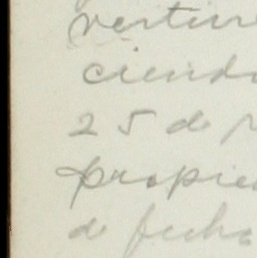 vertir
ciendo
25 de
propie
de fecha